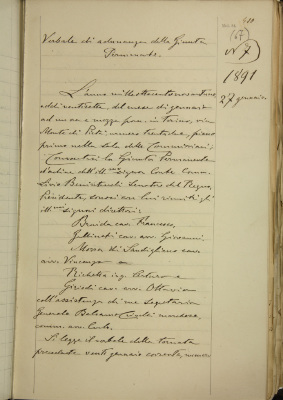 Verbale di adunanza della Giunta
Permanente.
(67)
N 7
1891
27 gennaio
L'anno milleottocentonovantuno
addì ventisette del mese di gennaio
ad un'ora e mezza pom. in Torino, via
Monte di Pietà, numero trentadue, piano
primo nella Sala delle Commissioni:
Convocatasi la Giunta Permanente
d'ordine dell'Ill.mo Signor Conte Comm.
Livio Benintendi Senatore del Regno,
Presidente, sonosi con lui riuniti gli
ill.mi Signori direttori:
Braida cav. Francesco,
cav. avv. Giovanni
Morra di Sandigliano cav.
avv. Vincenzo
Richetta ing. e
cav. avv. Ottavio
coll'assistenza di me Segretario
Generale Balsamo Crivelli nundoso,
comm. avv. Carlo.
Si legge il verbale della tornata
precedente venti gennaio corrente, numero